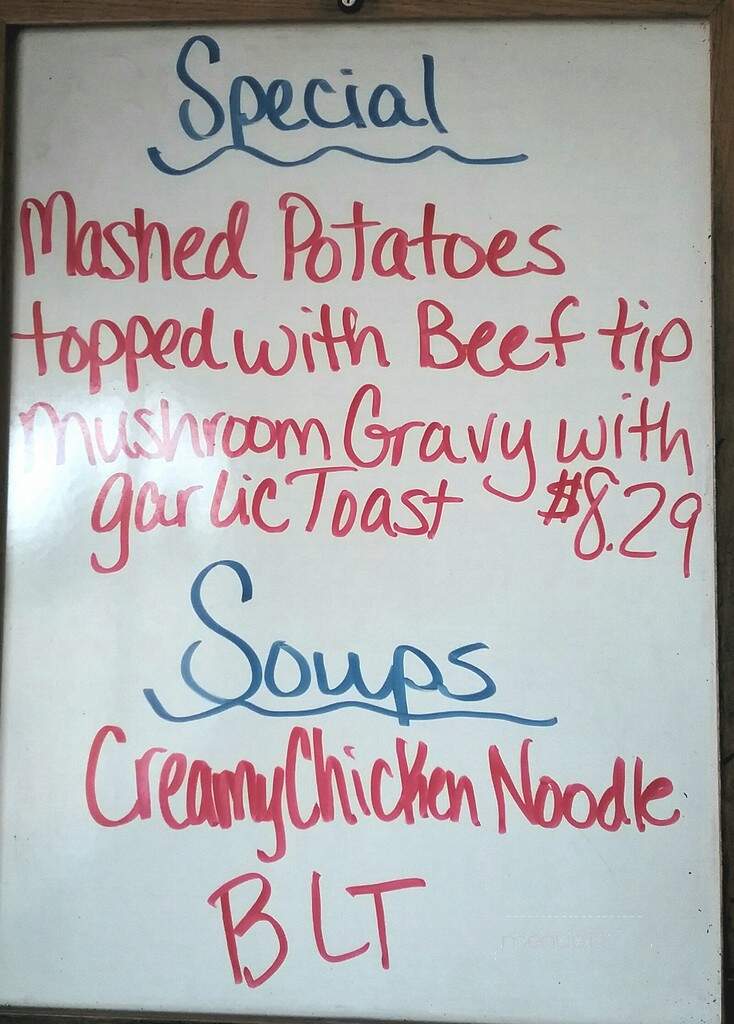 Special
Mashed Potatoes
topped with Beef tip
mushroom Gravy with
garlic Toast $8.29
Soups
Creamy Chicken Noodle
BLT